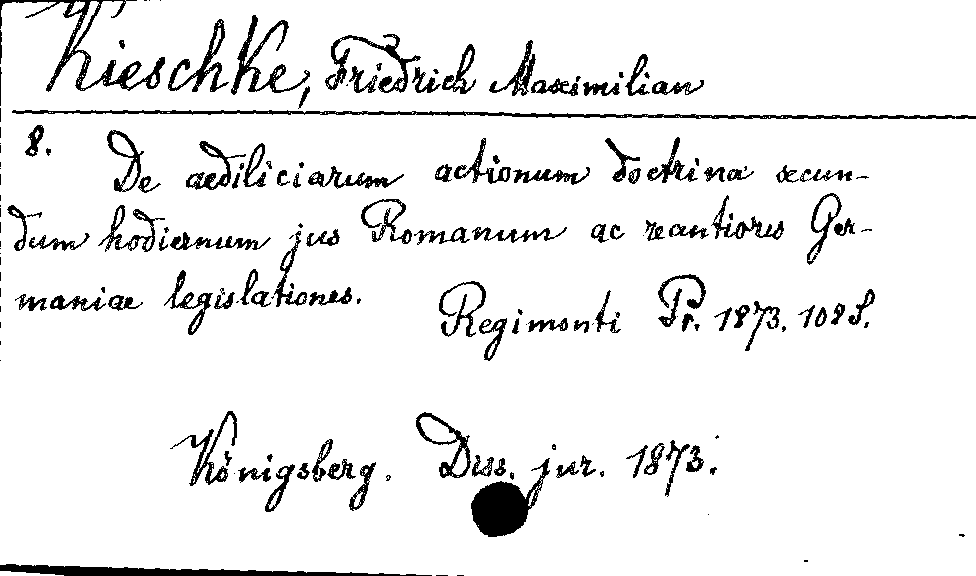 Kieschke, Friedrich Maximilian
8. De aediliciarum actionum doctrina secun-
dum hodiernum jus Romanum ac recentiores Ger-
maniae legislationes.
Regimonti Pr. 1873. 108 S.
Königsberg. Diss. jur. 1873.